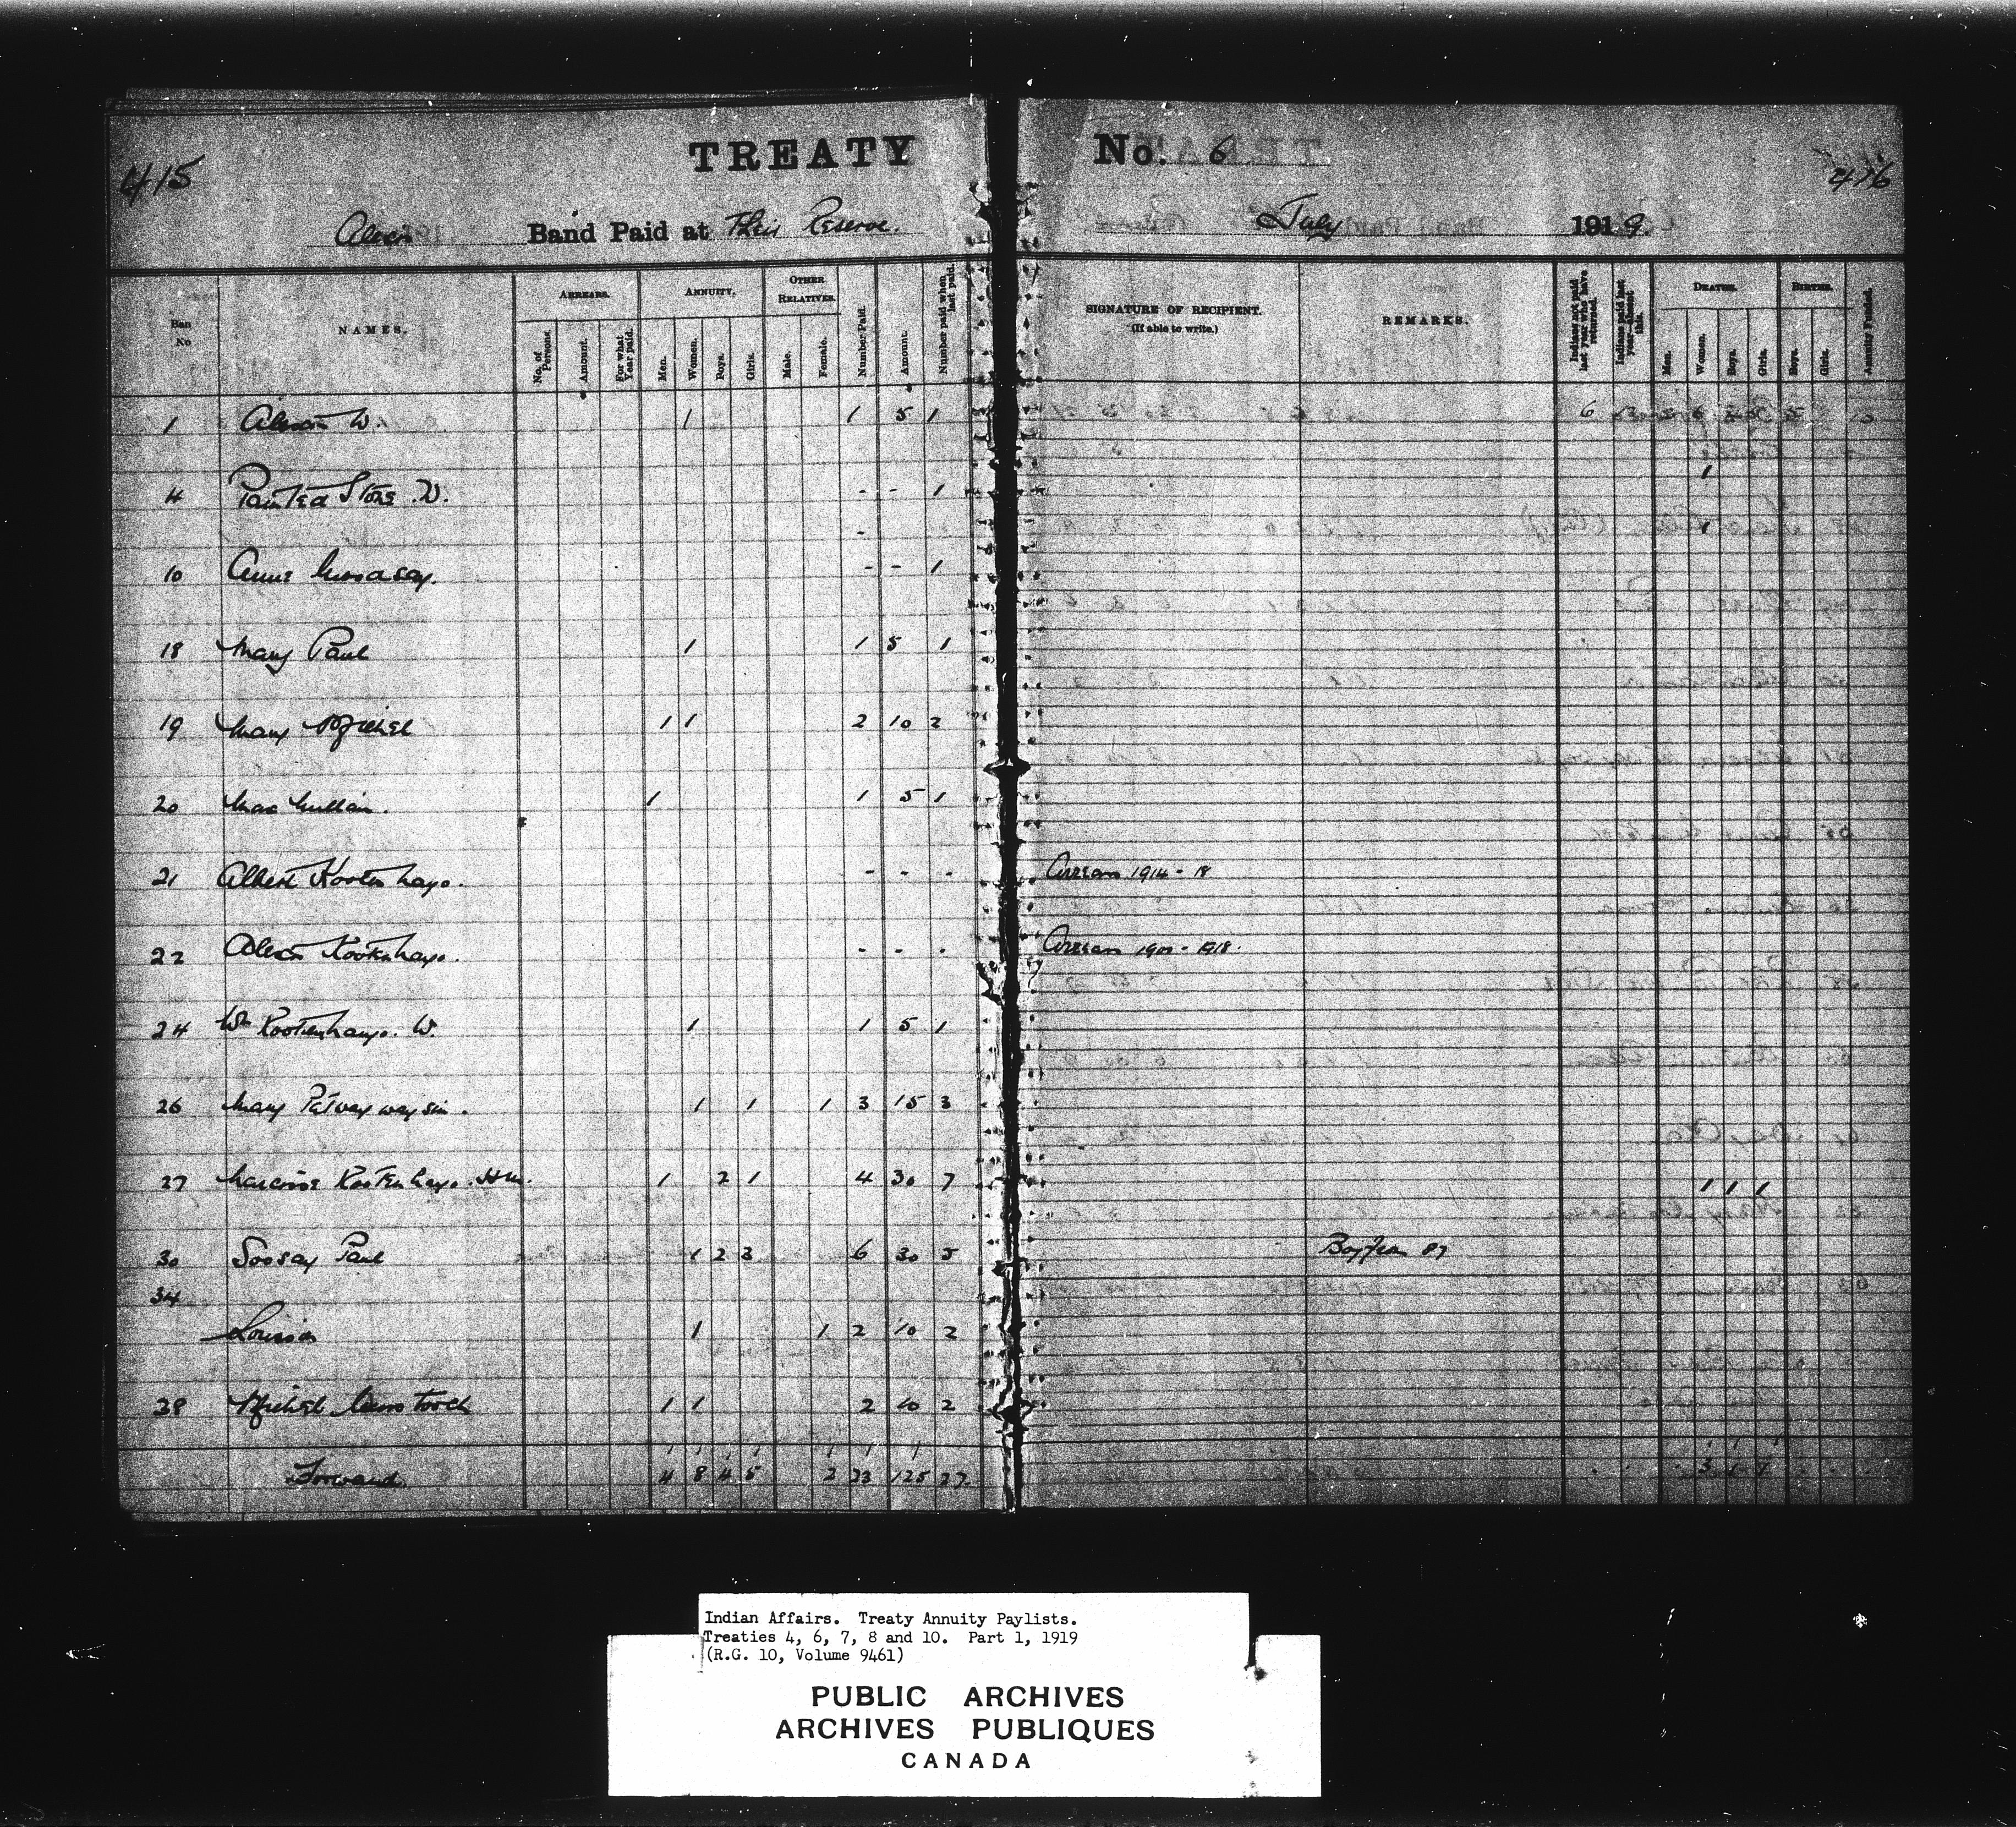 415
TREATY No. 6
416
Alexis Band Paid at Their Reserve.
July 1919.
Ban No
NAMES.
ARREARS.
No. of Persons.
Amount.
For what Year paid.
ANNUITY.
Men.
Women.
Boys.
Girls.
OTHER RELATIVES.
Male.
Female.
Number Paid.
Amount.
Number paid when last paid.
SIGNATURE OF RECIPIENT.
(If able to write.)
REMARKS.
Indians not paid last year who have returned.
Indians paid last year—absent this.
DEATHS.
Men.
Women.
Boys.
Girls.
BIRTHS.
Boys.
Girls.
Annuity Funded.
1 Alexis W. 1 1 5 1
4 Painted Stone W. - - 1 1
10 - - 1 1
18 Mary Paul 1 1 5 1
19 Mary Michel 1 1 2 10 2
20 1 1 5 1
21 Albert Kootenhayo. - - - Arrears 1914 - 18
22 Alexis Kootenhayo. - - - Arrears - 1918.
24 Wm Kootenhayo. W. 1 1 5 1
26 Mary 1 1 1 3 15 3
27 Narcisse Kootenhayo. 1 2 1 4 30 7 1 1 1
30 Soosay Paul 1 2 3 6 30 5 Boy from 87
34
Louison 1 1 2 10 2
38 Michel 1 1 2 10 2
Forward. 4 8 4 5 2 23 125 27 3 1 1
Indian Affairs. Treaty Annuity Paylists.
Treaties 4, 6, 7, 8 and 10. Part 1, 1919
(R.G. 10, Volume 9461)
PUBLIC ARCHIVES
ARCHIVES PUBLIQUES
CANADA